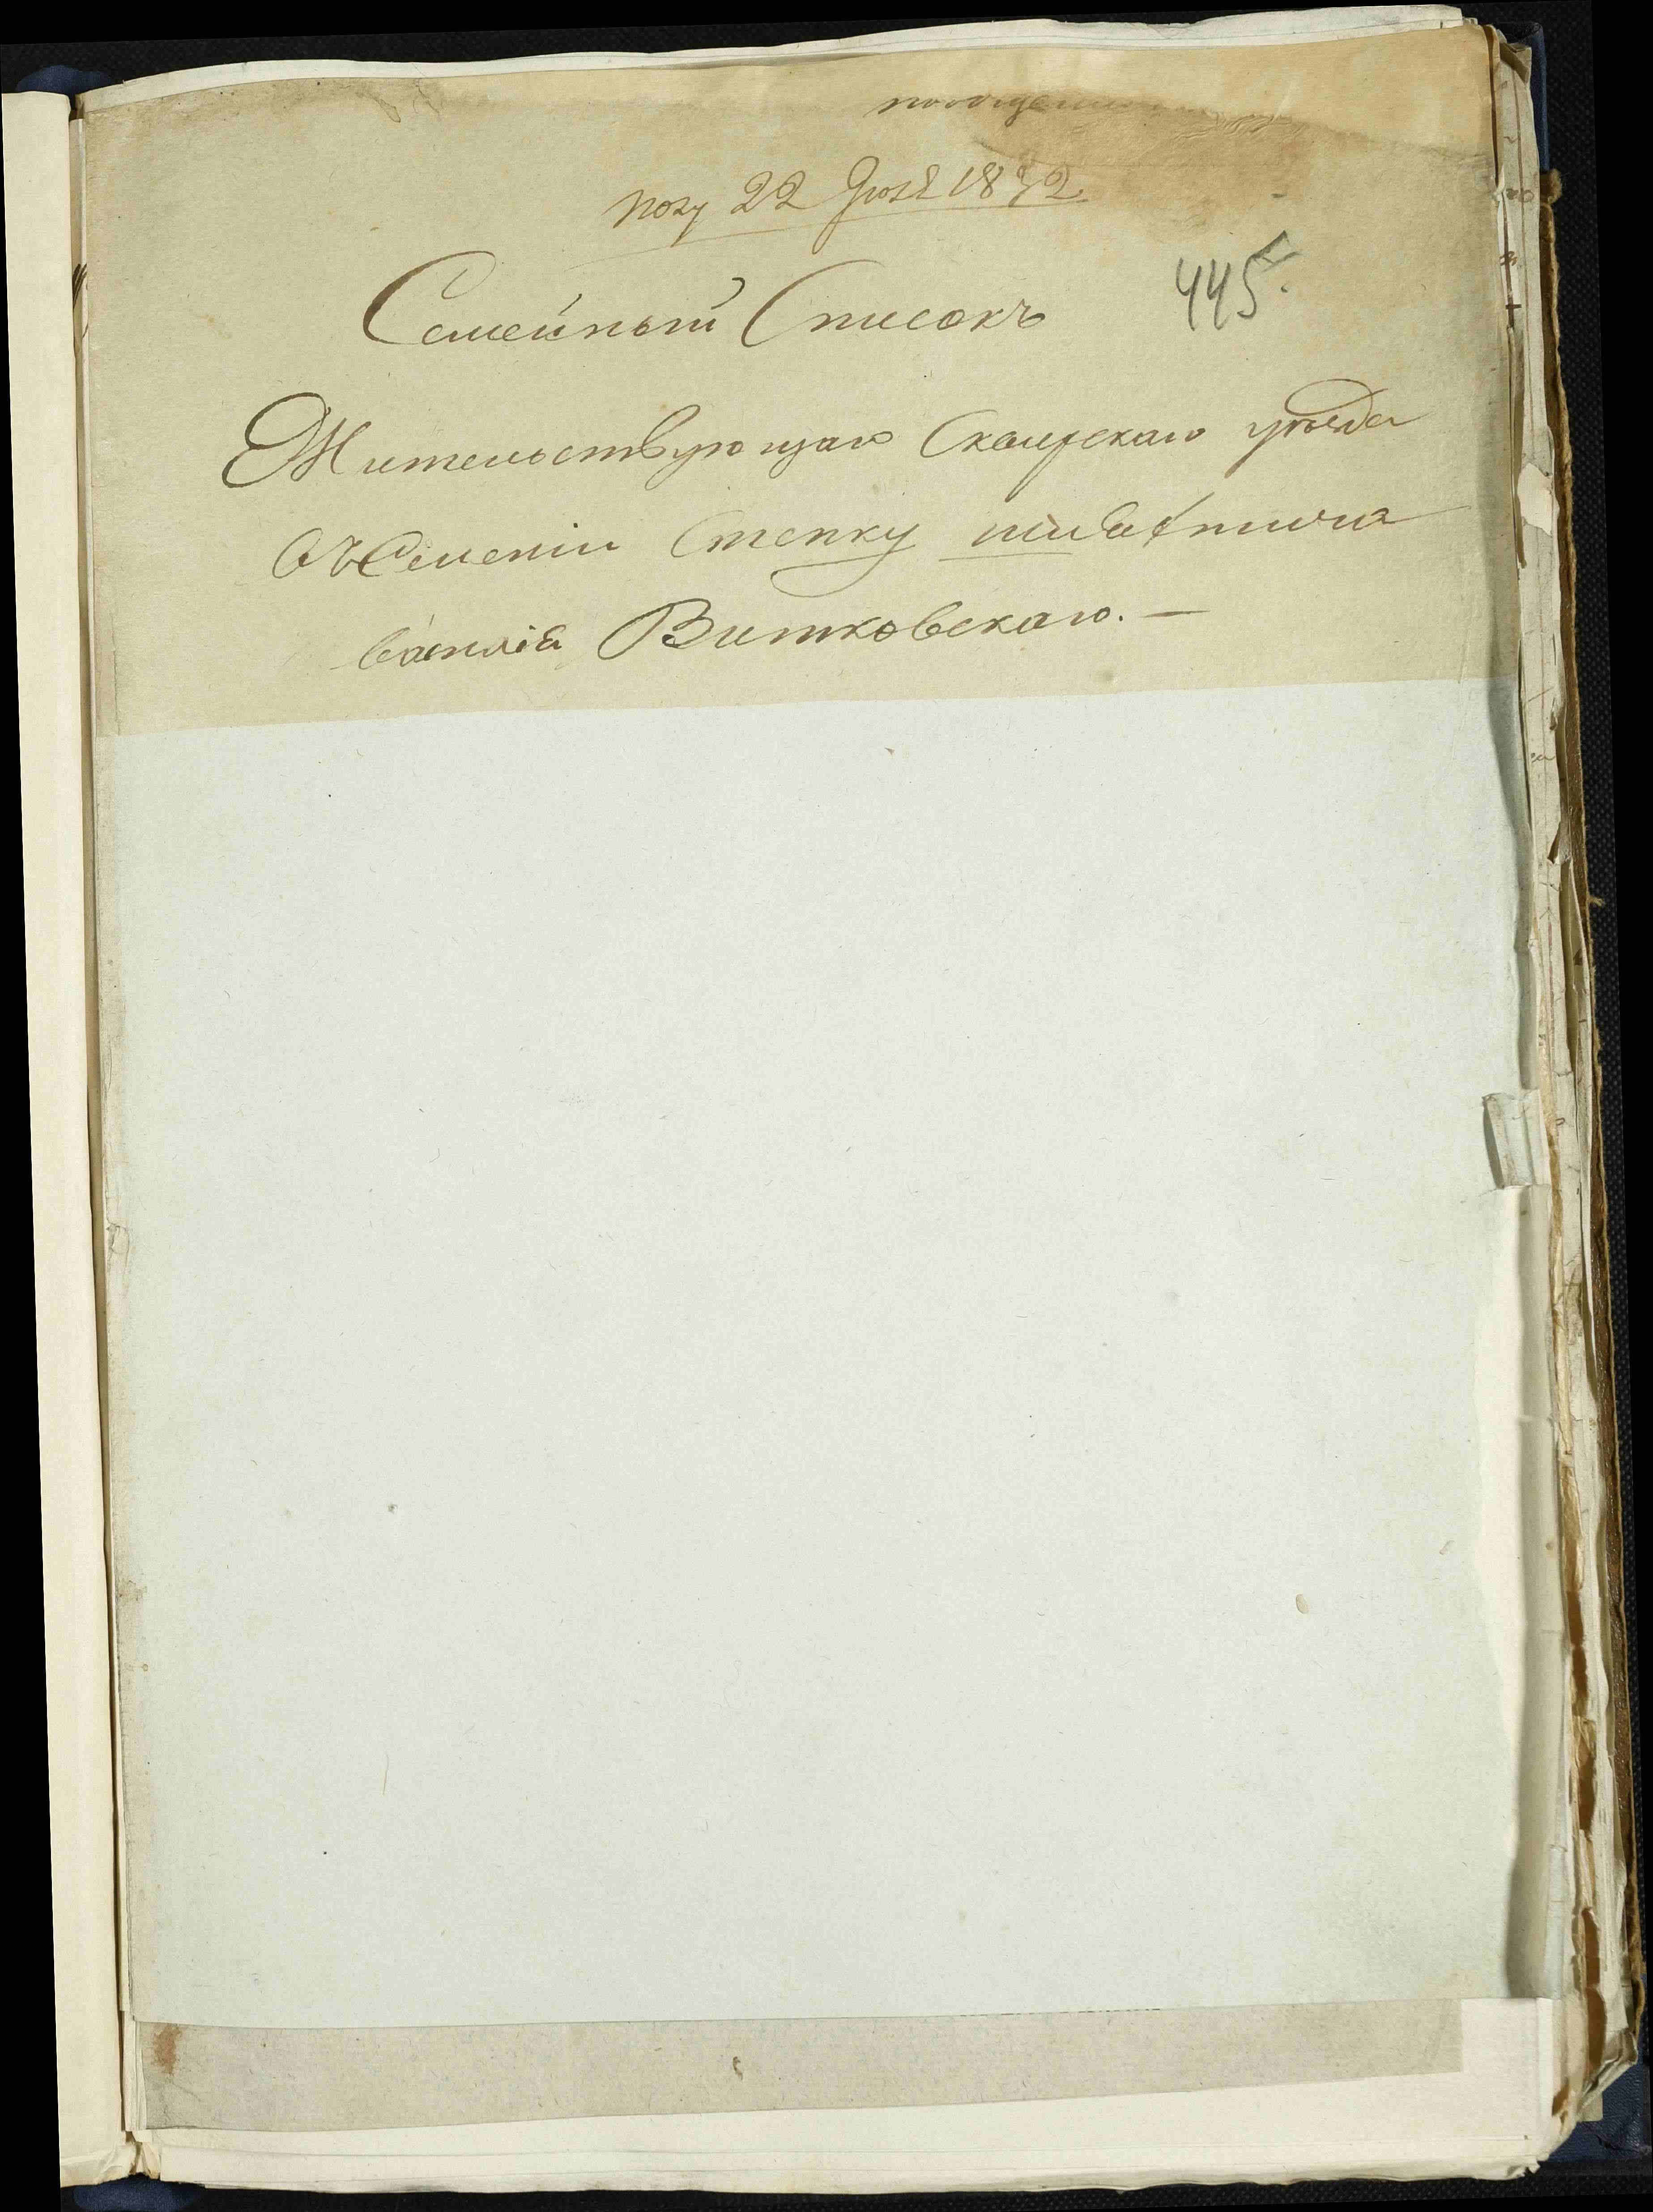 пол 22 Июля 1832
445.
Семейный Списокъ
Жительствующаго Сквирскаго уѣзда
въ Селеніи Степку шляхтича
Василія Витковскаго. —